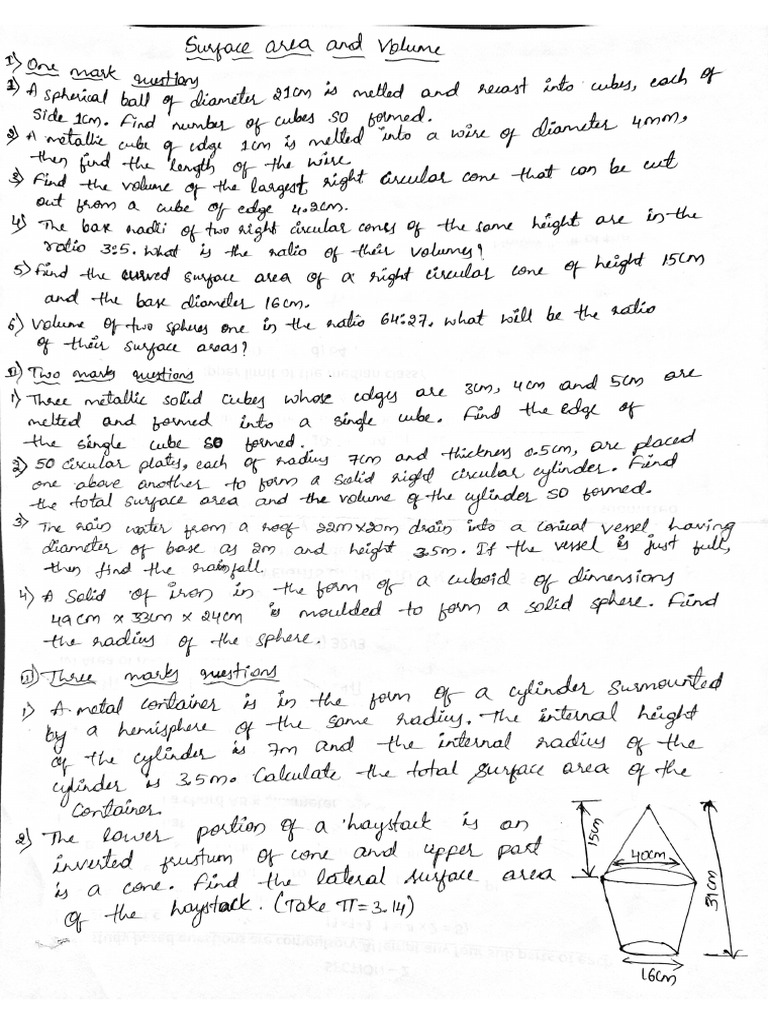 Surface area and Volume
I) One mark questions
1) A spherical ball of diameter 21cm is melted and recast into cubes, each of
side 1cm. Find number of cubes so formed.
2) A metallic cube of edge 1cm is melted into a wire of diameter 4mm,
then find the length of the wire.
3) Find the volume of the largest right circular cone that can be cut
out from a cube of edge 4.2cm.
4) The base radii of two right circular cones of the same height are in the
ratio 3:5. What is the ratio of their volumes?
5) Find the curved surface area of a right circular cone of height 15cm
and the base diameter 16cm.
6) Volume of two spheres one in the ratio 64:27. What will be the ratio
of their surface areas?
II) Two marks questions
1) Three metallic solid cubes whose edges are 3cm, 4cm and 5cm are
melted and formed into a single cube. Find the edge of
the single cube so formed.
2) 50 circular plates, each of radius 7cm and thickness 0.5cm, are placed
one above another to form a solid right circular cylinder. Find
the total surface area and the volume of the cylinder so formed.
3) The rain water from a roof 22m×20m drain into a conical vessel having
diameter of base as 2m and height 3.5m. If the vessel is just full,
then find the rainfall.
4) A solid of iron in the form of a cuboid of dimensions
49cm × 33cm × 24cm is moulded to form a solid sphere. Find
the radius of the sphere.
III) Three marks questions
1) A metal container is in the form of a cylinder surmounted
by a hemisphere of the same radius. The internal height
of the cylinder is 7m and the internal radius of the
cylinder is 3.5m. Calculate the total surface area of the
container.
2) The lower portion of a haystack is an
inverted frustum of cone and upper part
is a cone. Find the lateral surface area
of the haystack. (Take π=3.14)
15cm
40cm
31cm
16cm